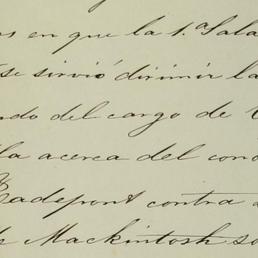 os en que la 1.ª Sala
se sirvió dirimir la
ndo del cargo de
la acerca del con
Radepont contra
Mackintosh so